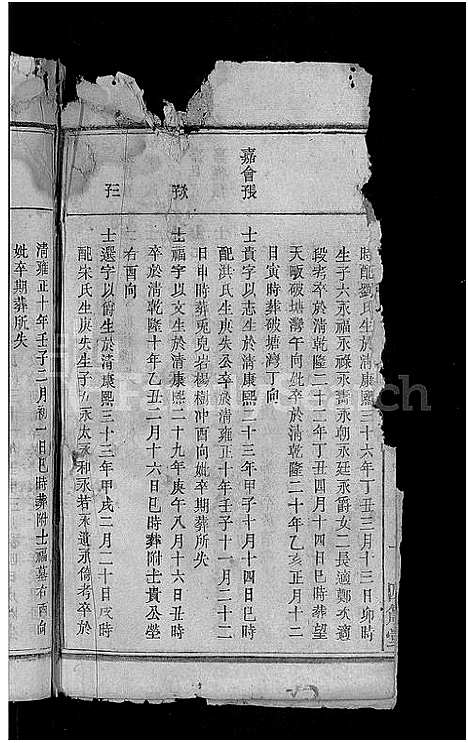 時配劉氏生於清康熙三十六年丁丑三月十三日卯時
生子六永福永祿永壽永朝永廷永爵女二長適鄭次適
段考卒於清乾隆二十二年丁丑四月十四日巳時葬望
天畈破塘灣午向妣卒於清乾隆二十年乙亥正月十二
日寅時葬破塘灣丁向
嘉會
士貴字以志生於清康熙二十三年甲子十月十四日巳時
配洪氏生庚失公卒於清雍正十年壬子十一月二十二
日申時葬兎兒岩楊樹冲酉向妣卒期葬所失
士福字以文生於清康熙二十九年庚午八月十六日丑時
卒於清乾隆十年乙丑二月十六日巳時葬附士貴公塋
右酉向
士選字以爵生於清康熙三十三年甲戌二月二十日戌時
配朱氏生庚失生子永太永和永若永道永倫考卒於
清雍正十年壬子二月初一日巳時葬附士福墓右酉向
妣卒期葬所失